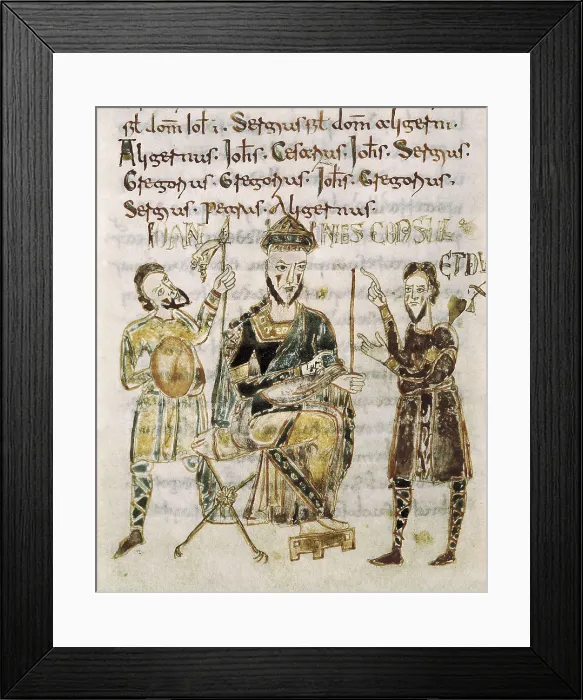 dom̄ Ioh̄ i. Sergius dom̄ aligerni.
Aligernus. Joh̄s. Cesarius. Joh̄s. Sergius.
Gregorius. Gregorius. Joh̄s. Gregorius.
Sergius. petrus. Aligernus.
IOANNES CONSUL
ET DU
X